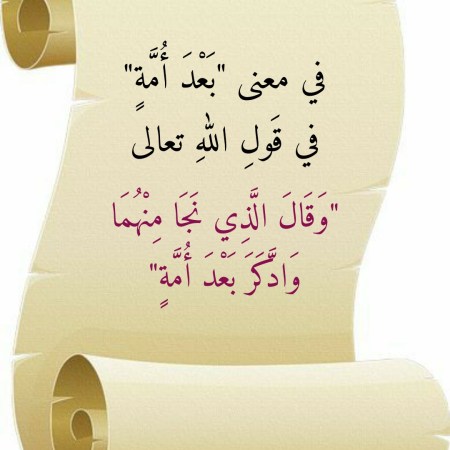 في معنى "بَعْدَ أُمَّةٍ"
في قَولِ اللهِ تعالى
"وَقَالَ الَّذِي نَجَا مِنْهُمَا
وَادَّكَرَ بَعْدَ أُمَّةٍ"